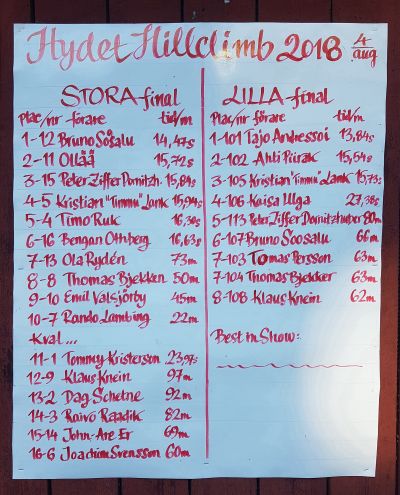 Hydet Hillclimb 2018 4/aug
STORA-final
Plac/nr förare tid/m
1-12 Bruno Soosalu 14,47s
2-11 Ollää 15,72s
3-15 Peter Ziffer Dornitzh. 15,84s
4-5 Kristian "Timmu" Lank 15,94s
5-4 Timo Ruk 16,30s
6-16 Bengan Othberg 16,63s
7-13 Ola Rydén 73m
8-8 Thomas Bjekken 50m
9-10 Emil Valsjörby 45m
10-7 Rando Lambing 22m
Kval...
11-1 Tommy Kristerson 23,97s
12-9 Klaus Knein 97m
13-2 Dag Schetne 92m
14-3 Raivo Raadik 82m
15-14 John-Are Er 69m
16-6 Joachim Svensson 60m
LILLA-final
Plac/nr förare tid/m
1-101 Tajo Andressoi 13,84s
2-102 Ahti Piirak 15,54s
3-105 Kristian "Timmu" Lank 15,73s
4-106 Kaisa Ulga 27,38s
5-113 Peter Ziffer Dornitzhuber 80m
6-107 Bruno Soosalu 66m
7-103 Tomas Persson 63m
7-104 Thomas Bjekker 63m
8-108 Klaus Knein 62m
Best in Show: